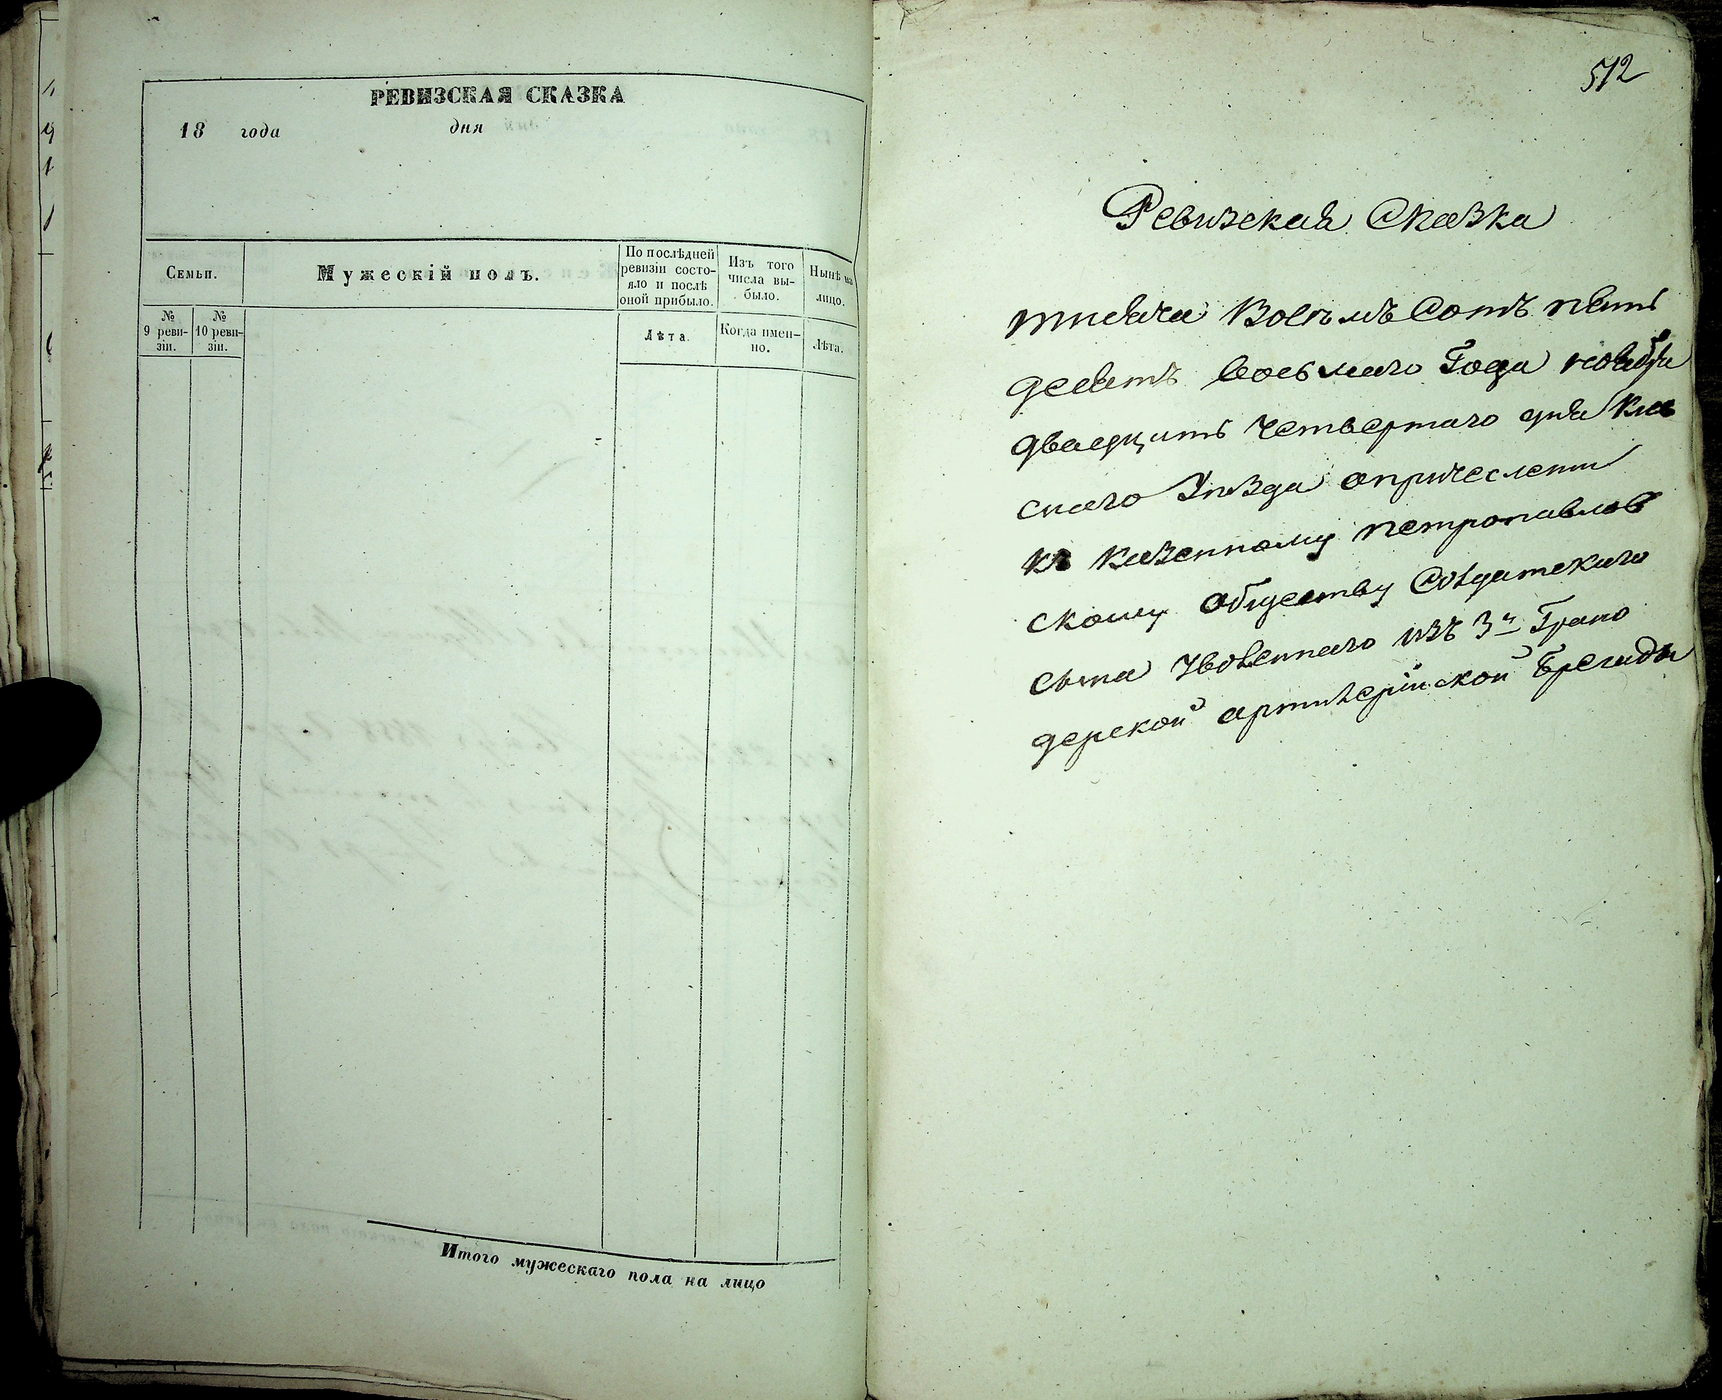 РЕВИЗСКАЯ СКАЗКА
18 года дня
Семьи.
Мужескій полъ.
По послѣдней
ревизіи состо-
яло и послѣ
оной прибыло.
Изъ того
числа вы-
было.
Нынѣ на
лицо.
№
9 реви-
зіи.
№
10 реви-
зіи.
Лѣта.
Когда имен-
но.
Лѣта.
Итого мужескаго пола на лицо
512
Ревизская Сказка
тисяча Восъмъ Сотъ пять
десятъ восьмаго Года ноября
двадцять четвертаго дня
скаго Уѣзда опричеслети
къ Казенному петропавлов
скому обществу Солдатскаго
сына уволеннаго изъ 3й Грано
дерской артилерійской Брегады